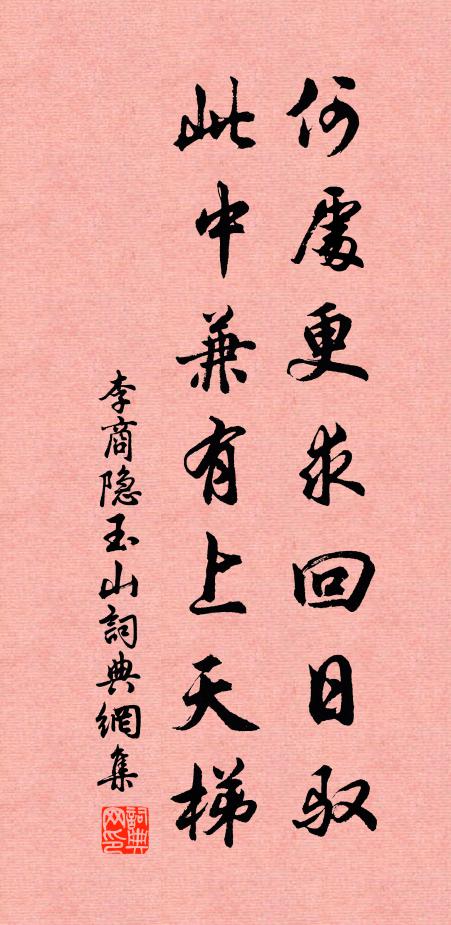 何處更求回日驭
此中兼有上天梯
李商隐玉山詞典網集
詞典
网印